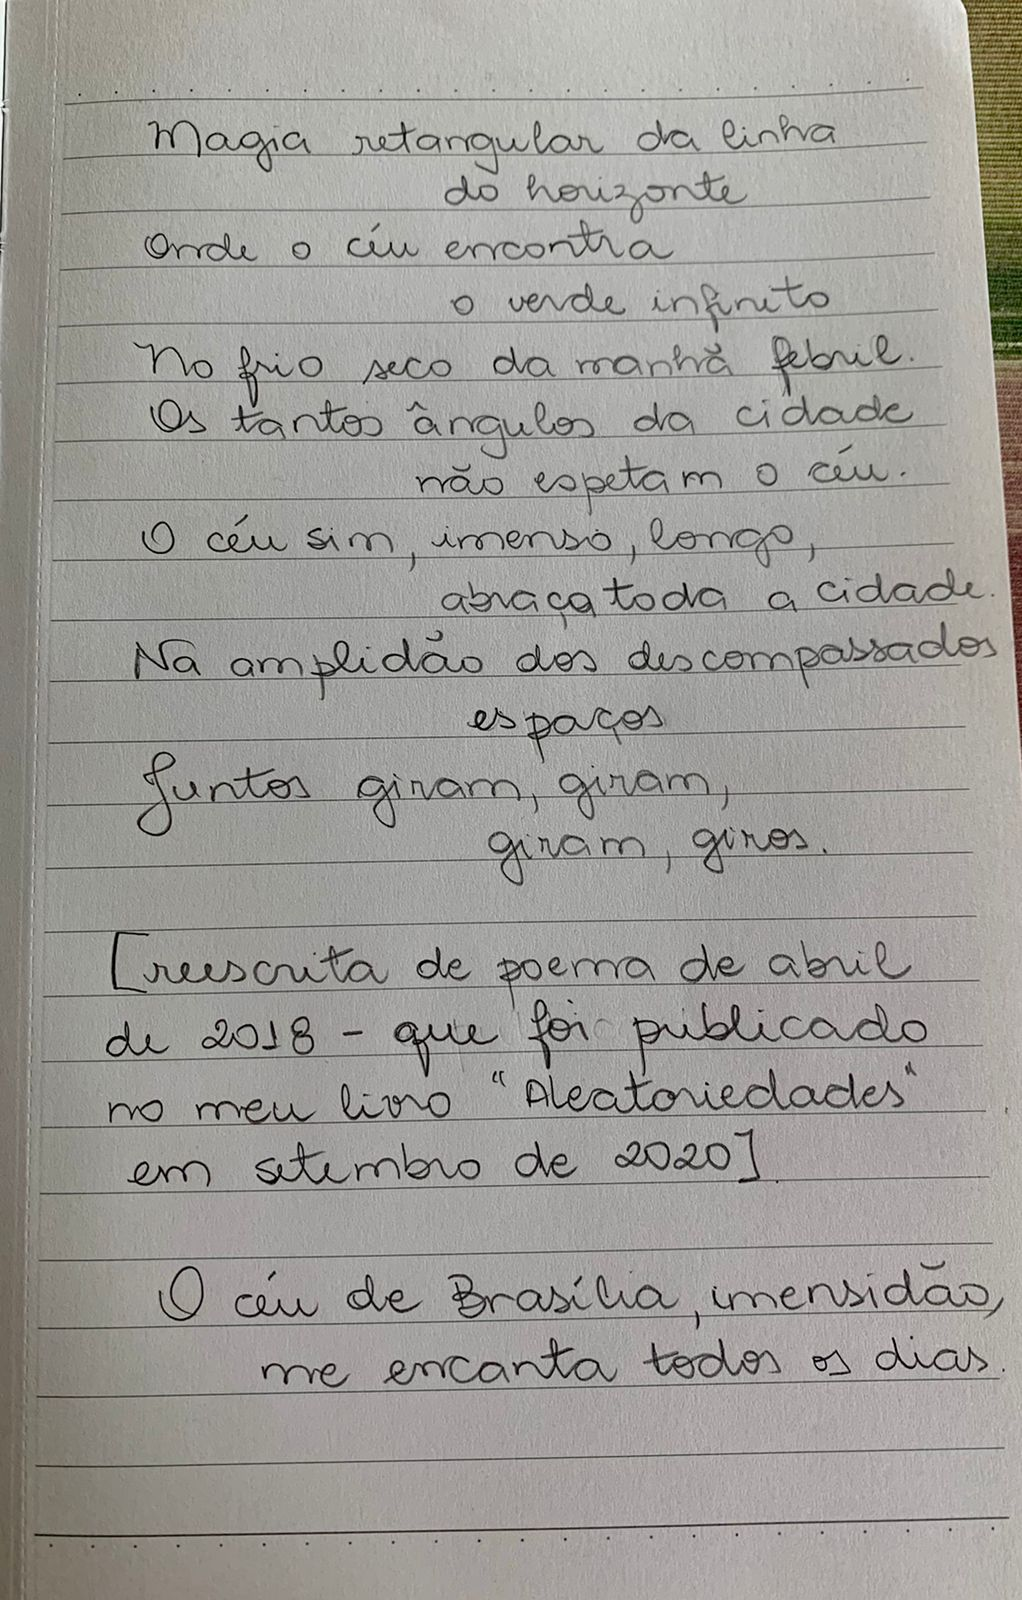 Magia retangular da linha
do horizonte
Onde o céu encontra
o verde infinito
No frio seco da manhã febril.
Os tantos ângulos da cidade
não espetam o céu.
O céu sim, imenso, longo,
abraça toda a cidade.
Na amplidão dos descompassados
espaços
Juntos giram, giram,
giram, giros.
[reescrita de poema de abril
de 2018 - que foi publicado
no meu livro "Aleatoriedades"
em setembro de 2020]
O céu de Brasília, imensidão,
me encanta todos os dias.